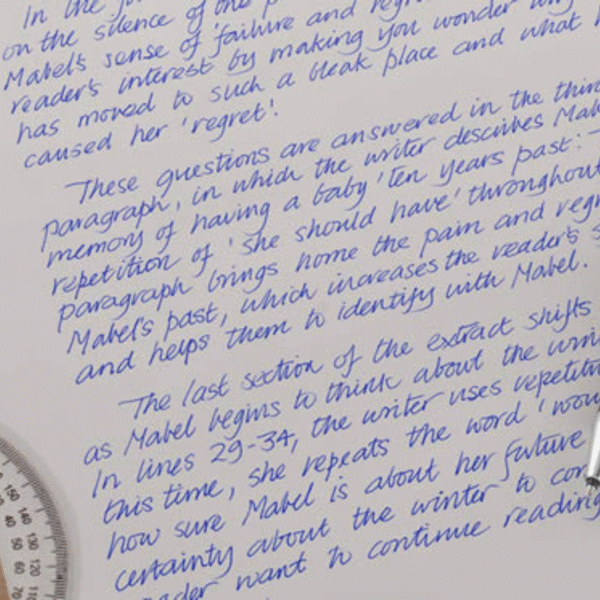 In the
on the silence of the
Mabel's sense of failure and
reader's interest by making you wonder why
has moved to such a bleak place and what
caused her 'regret'.
These questions are answered in the third
paragraph, in which the writer describes
memory of having a baby 'ten years past:
repetition of 'she should have' throughout
paragraph brings home the pain and
Mabel's past, which increases the reader's
and helps them to identify with Mabel.
The last section of the extract shifts
as Mabel begins to think about the
In lines 29-34, the writer uses
this time, she repeats the word
how sure Mabel is about her future
certainty about the winter to
want to continue reading
150
140
130
120
110
40
50
60
70